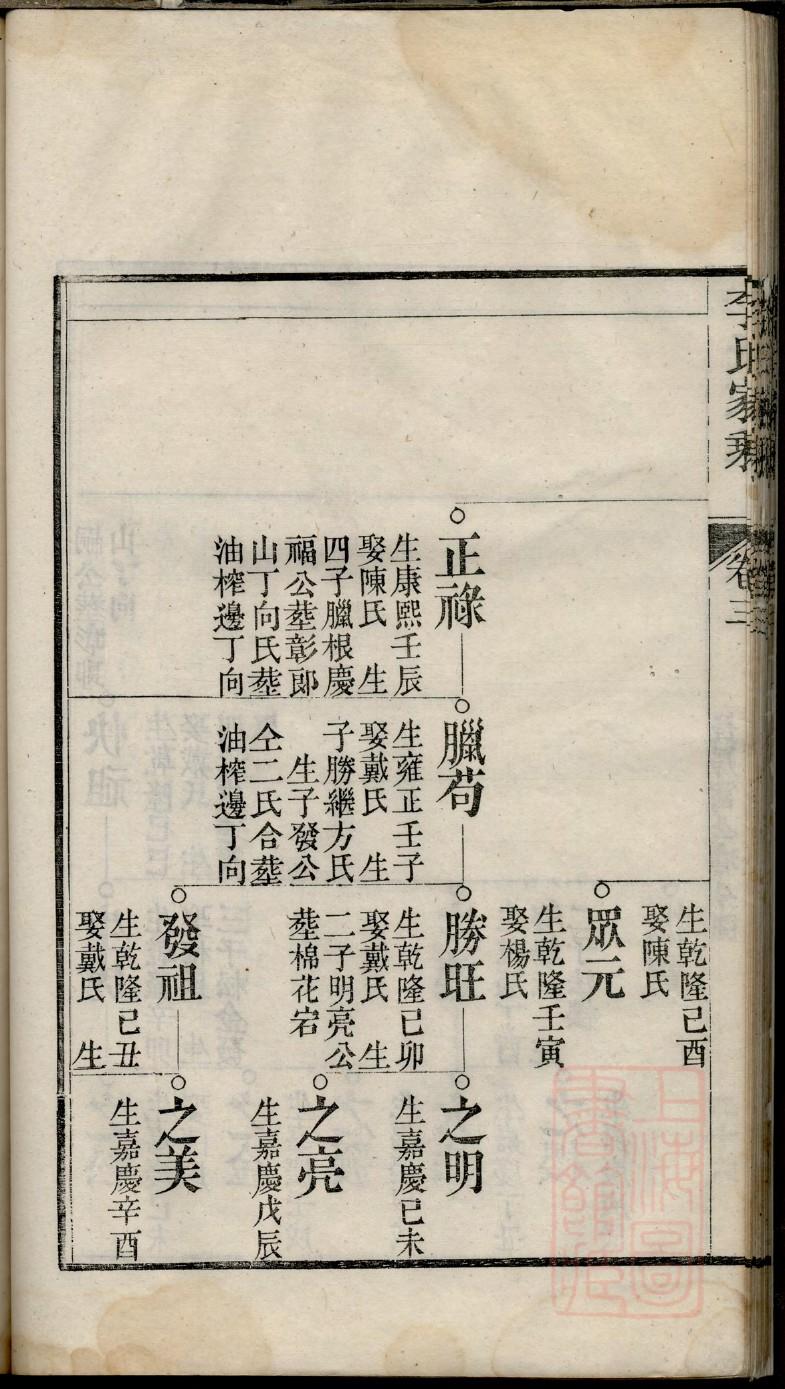 李氏家乘
卷三
正祿
生康熙壬辰
娶陳氏　生
四子臘根慶
福公塟彰郎
山丁向氏塟
油榨邊丁向
臘苟
生雍正壬子
娶戴氏　生
子勝繼方氏
生子發公
仝二氏合塟
油榨邊丁向
生乾隆己酉
娶陳氏
眾元
生乾隆壬寅
娶楊氏
勝旺
生乾隆己卯
娶戴氏　生
二子明亮公
塟棉花宕
發祖
生乾隆己丑
娶戴氏　生
之明
生嘉慶己未
之亮
生嘉慶戊辰
之美
生嘉慶辛酉